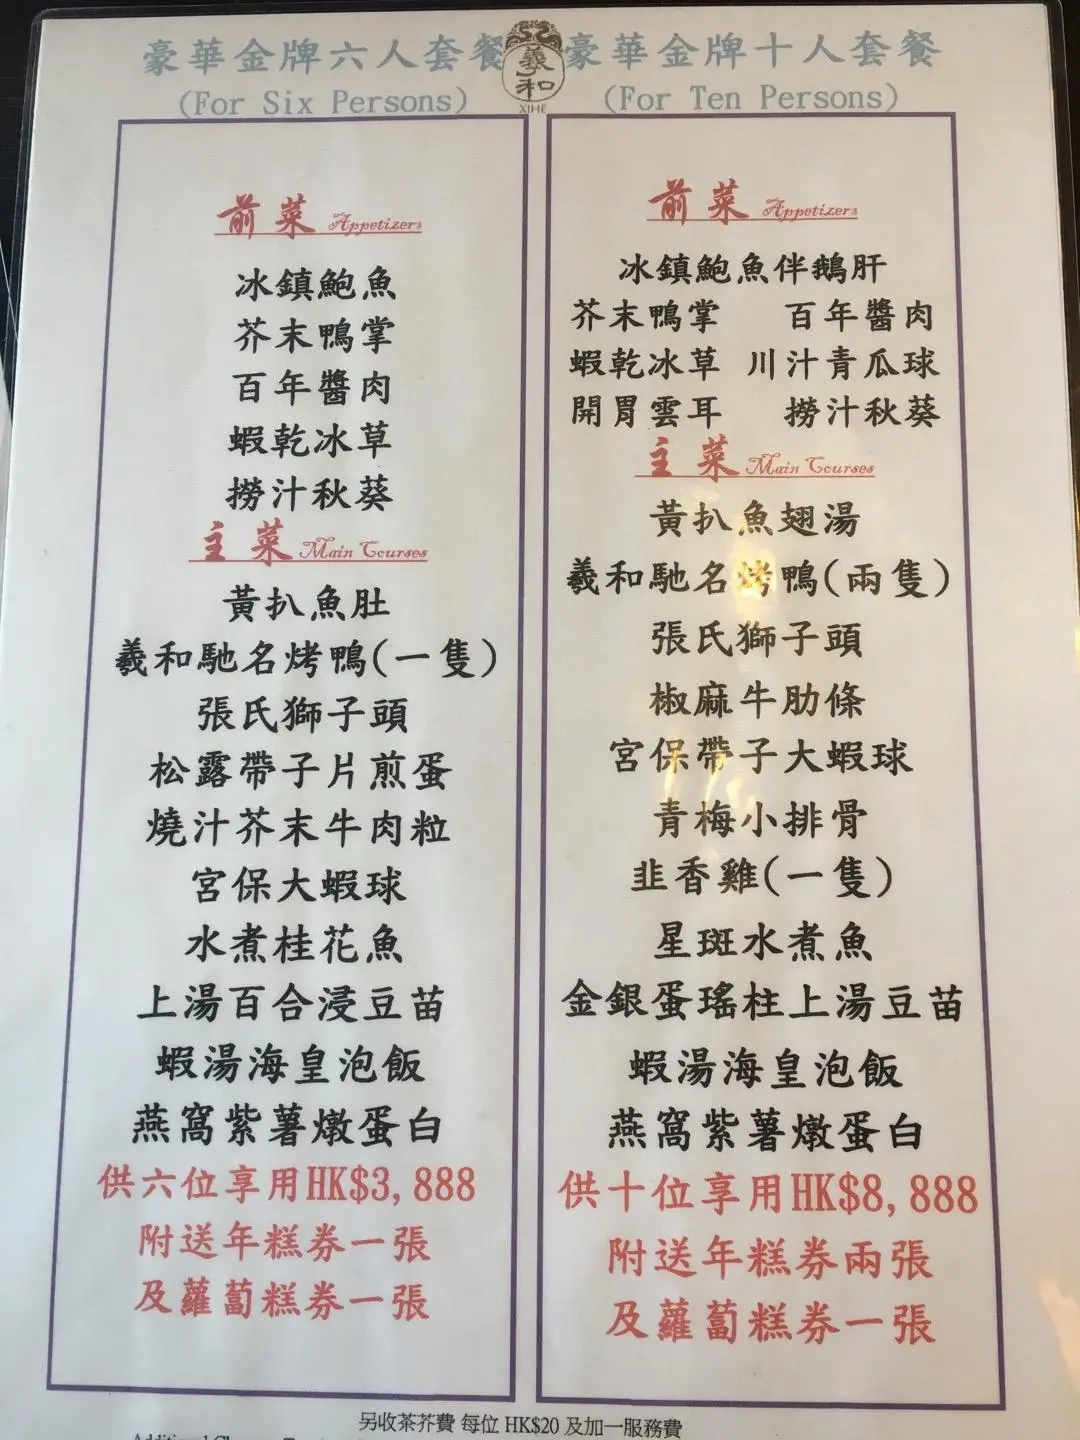 豪華金牌六人套餐
(For Six Persons)
羲和
XIHE
豪華金牌十人套餐
(For Ten Persons)
前菜 Appetizers
冰鎮鮑魚
芥末鴨掌
百年醬肉
蝦乾冰草
撈汁秋葵
主菜 Main Courses
黃扒魚肚
羲和馳名烤鴨(一隻)
張氏獅子頭
松露帶子片煎蛋
燒汁芥末牛肉粒
宮保大蝦球
水煮桂花魚
上湯百合浸豆苗
蝦湯海皇泡飯
燕窩紫薯燉蛋白
供六位享用HK$3,888
附送年糕券一張
及蘿蔔糕券一張
前菜 Appetizers
冰鎮鮑魚伴鵝肝
芥末鴨掌 百年醬肉
蝦乾冰草 川汁青瓜球
開胃雲耳 撈汁秋葵
主菜 Main Courses
黃扒魚翅湯
羲和馳名烤鴨(兩隻)
張氏獅子頭
椒麻牛肋條
宮保帶子大蝦球
青梅小排骨
韭香雞(一隻)
星斑水煮魚
金銀蛋瑤柱上湯豆苗
蝦湯海皇泡飯
燕窩紫薯燉蛋白
供十位享用HK$8,888
附送年糕券兩張
及蘿蔔糕券一張
另收茶芥費 每位 HK$20 及加一服務費